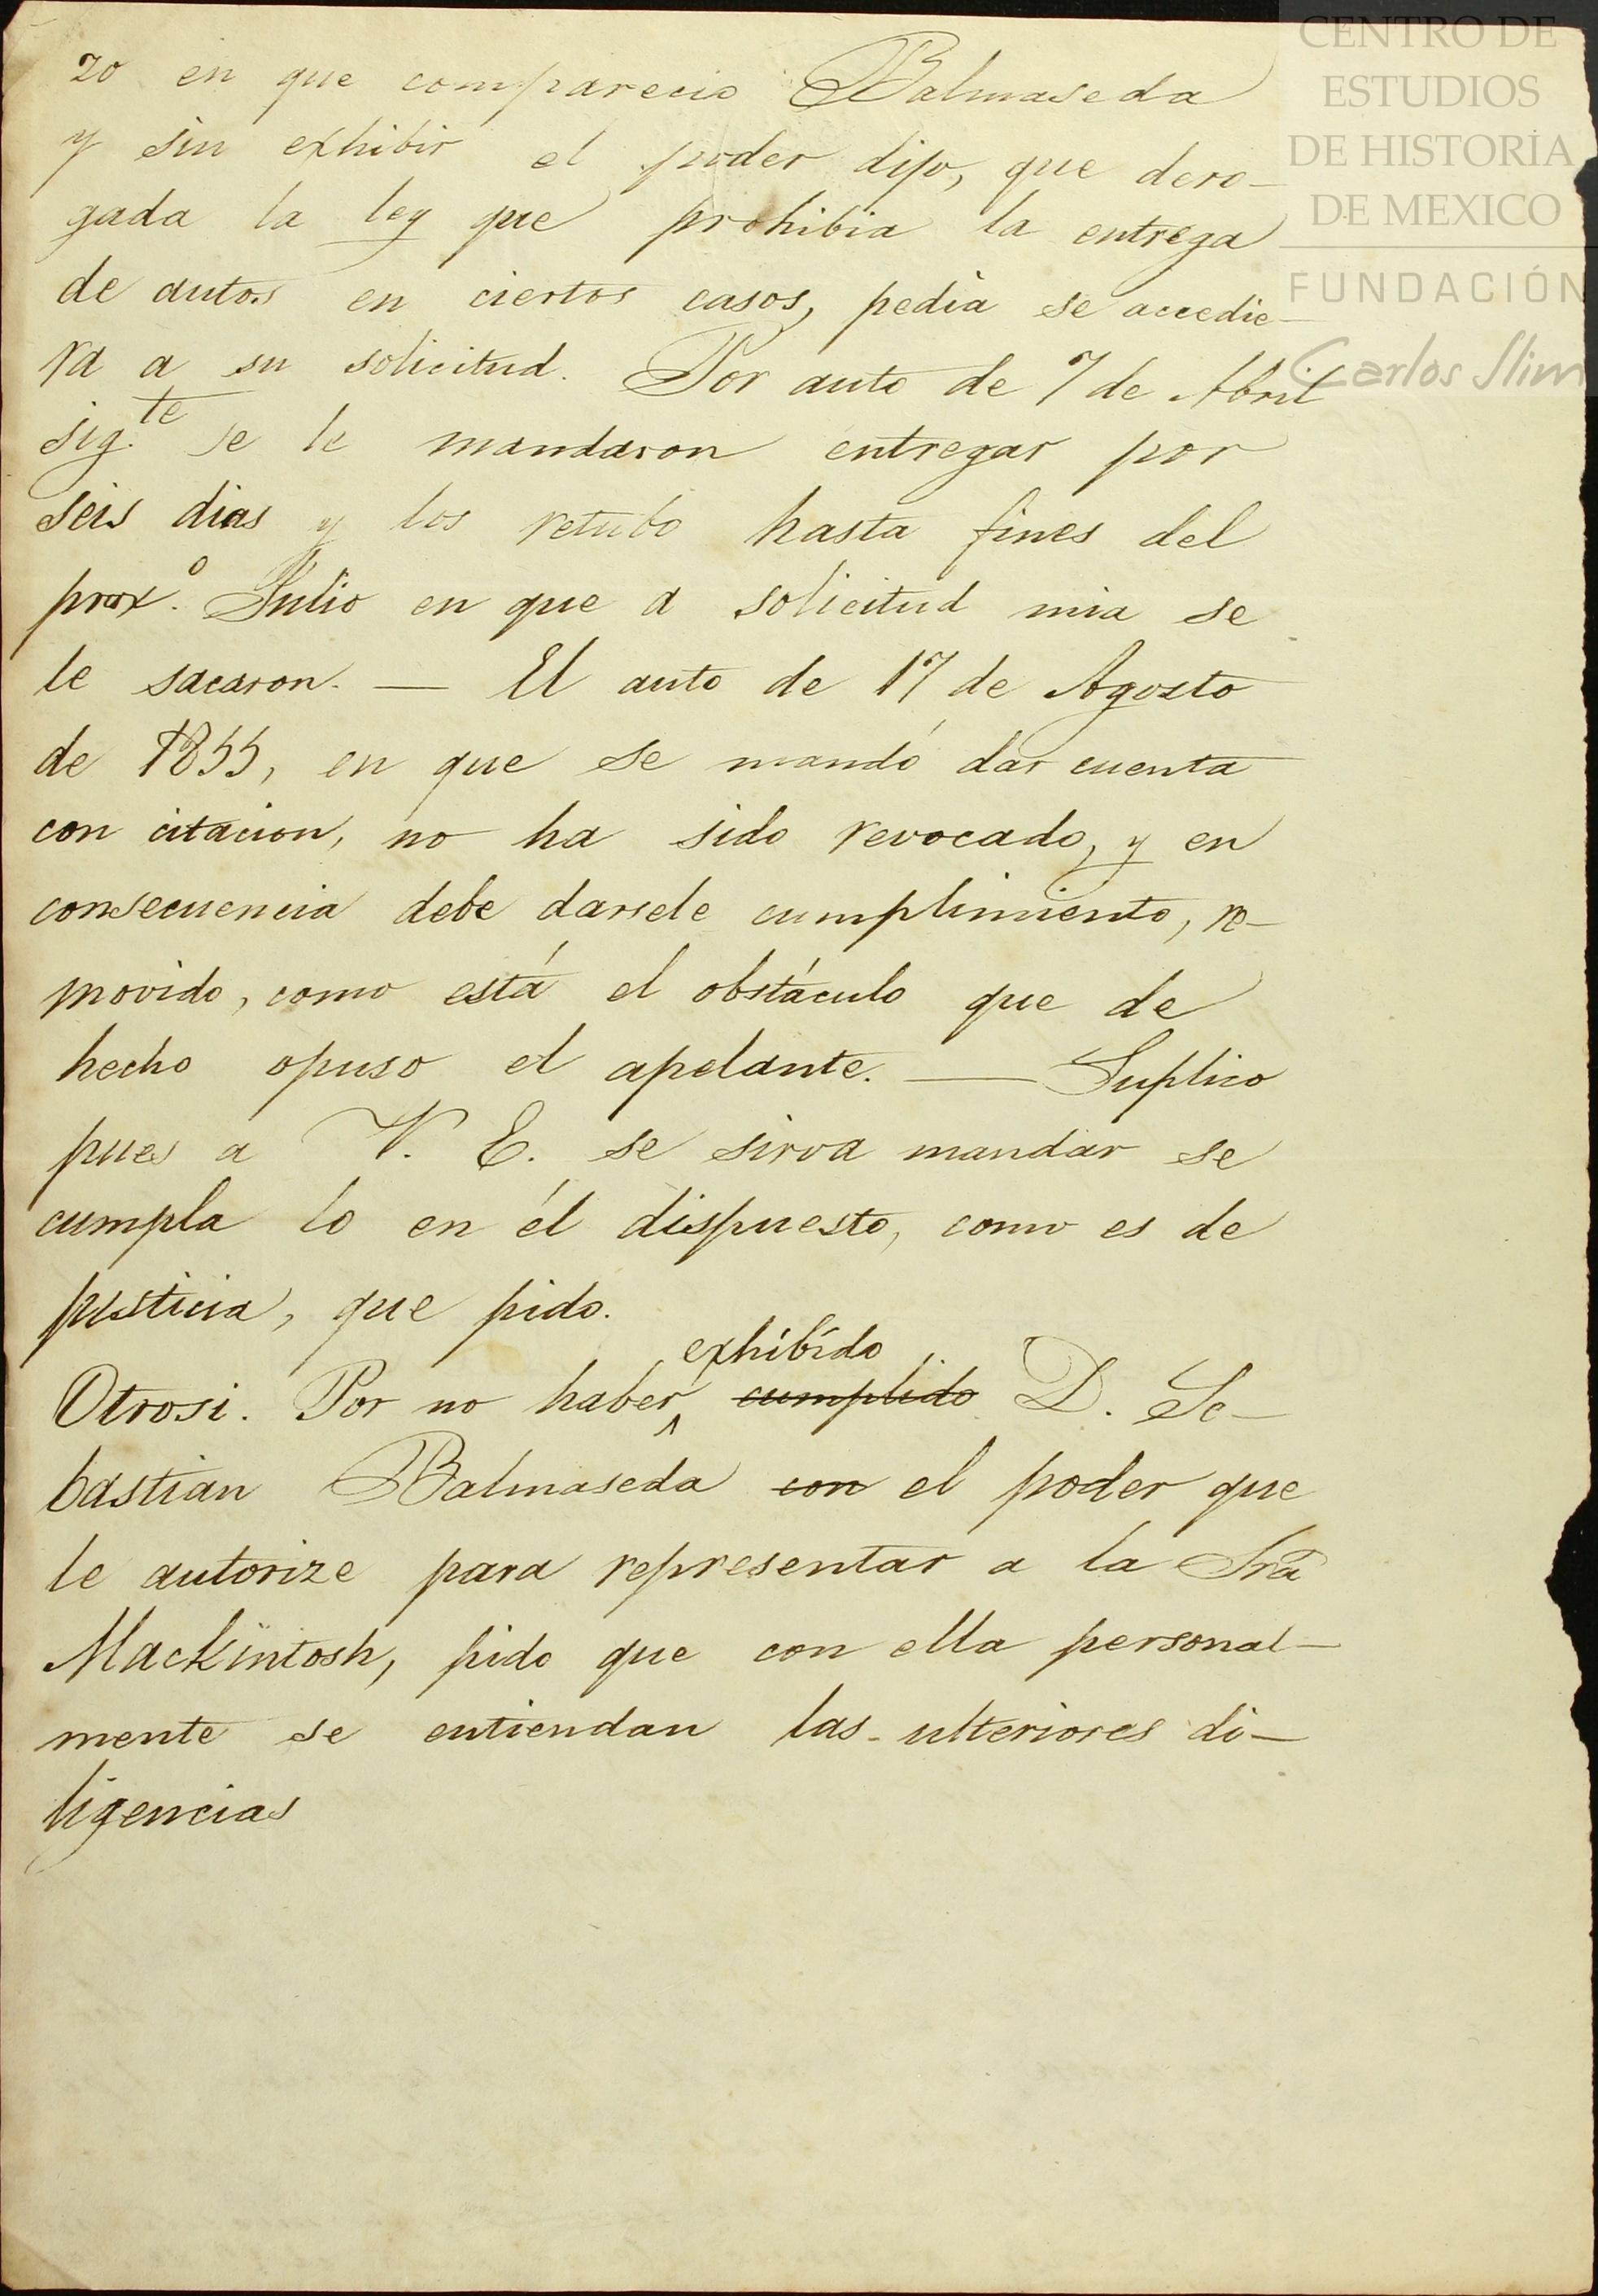 CENTRO DE
ESTUDIOS
DE HISTORIA
DE MEXICO
FUNDACIÓN
Carlos Slim
zo en que comparecio Balmaseda
y sin exhibir el poder dijo, que dero-
gada la ley que prohibia la entrega
de autos en ciertos casos, pedia se accedie-
ra a su solicitud. Por auto de 7 de Abril
sig.te se le mandaron entregar por
seis dias y los retubo hasta fines del
prox.o Julio en que a solicitud mia se
le sacaron. — El auto de 17 de Agosto
de 1855, en que se mandó dar cuenta
con citacion, no ha sido revocado, y en
consecuencia debe darsele cumplimiento, re-
movido, como está el obstáculo que de
hecho opuso el apelante. — Suplico
pues a V. E. se sirva mandar se
cumpla lo en él dispuesto, como es de
justicia, que pido.
exhibido
Otrosi. Por no haber cumplido D. Se-
bastian Balmaseda con el poder que
le autorize para representar a la Sra
Mackintosh, pido que con ella personal-
mente se entiendan las ulteriores di-
ligencias